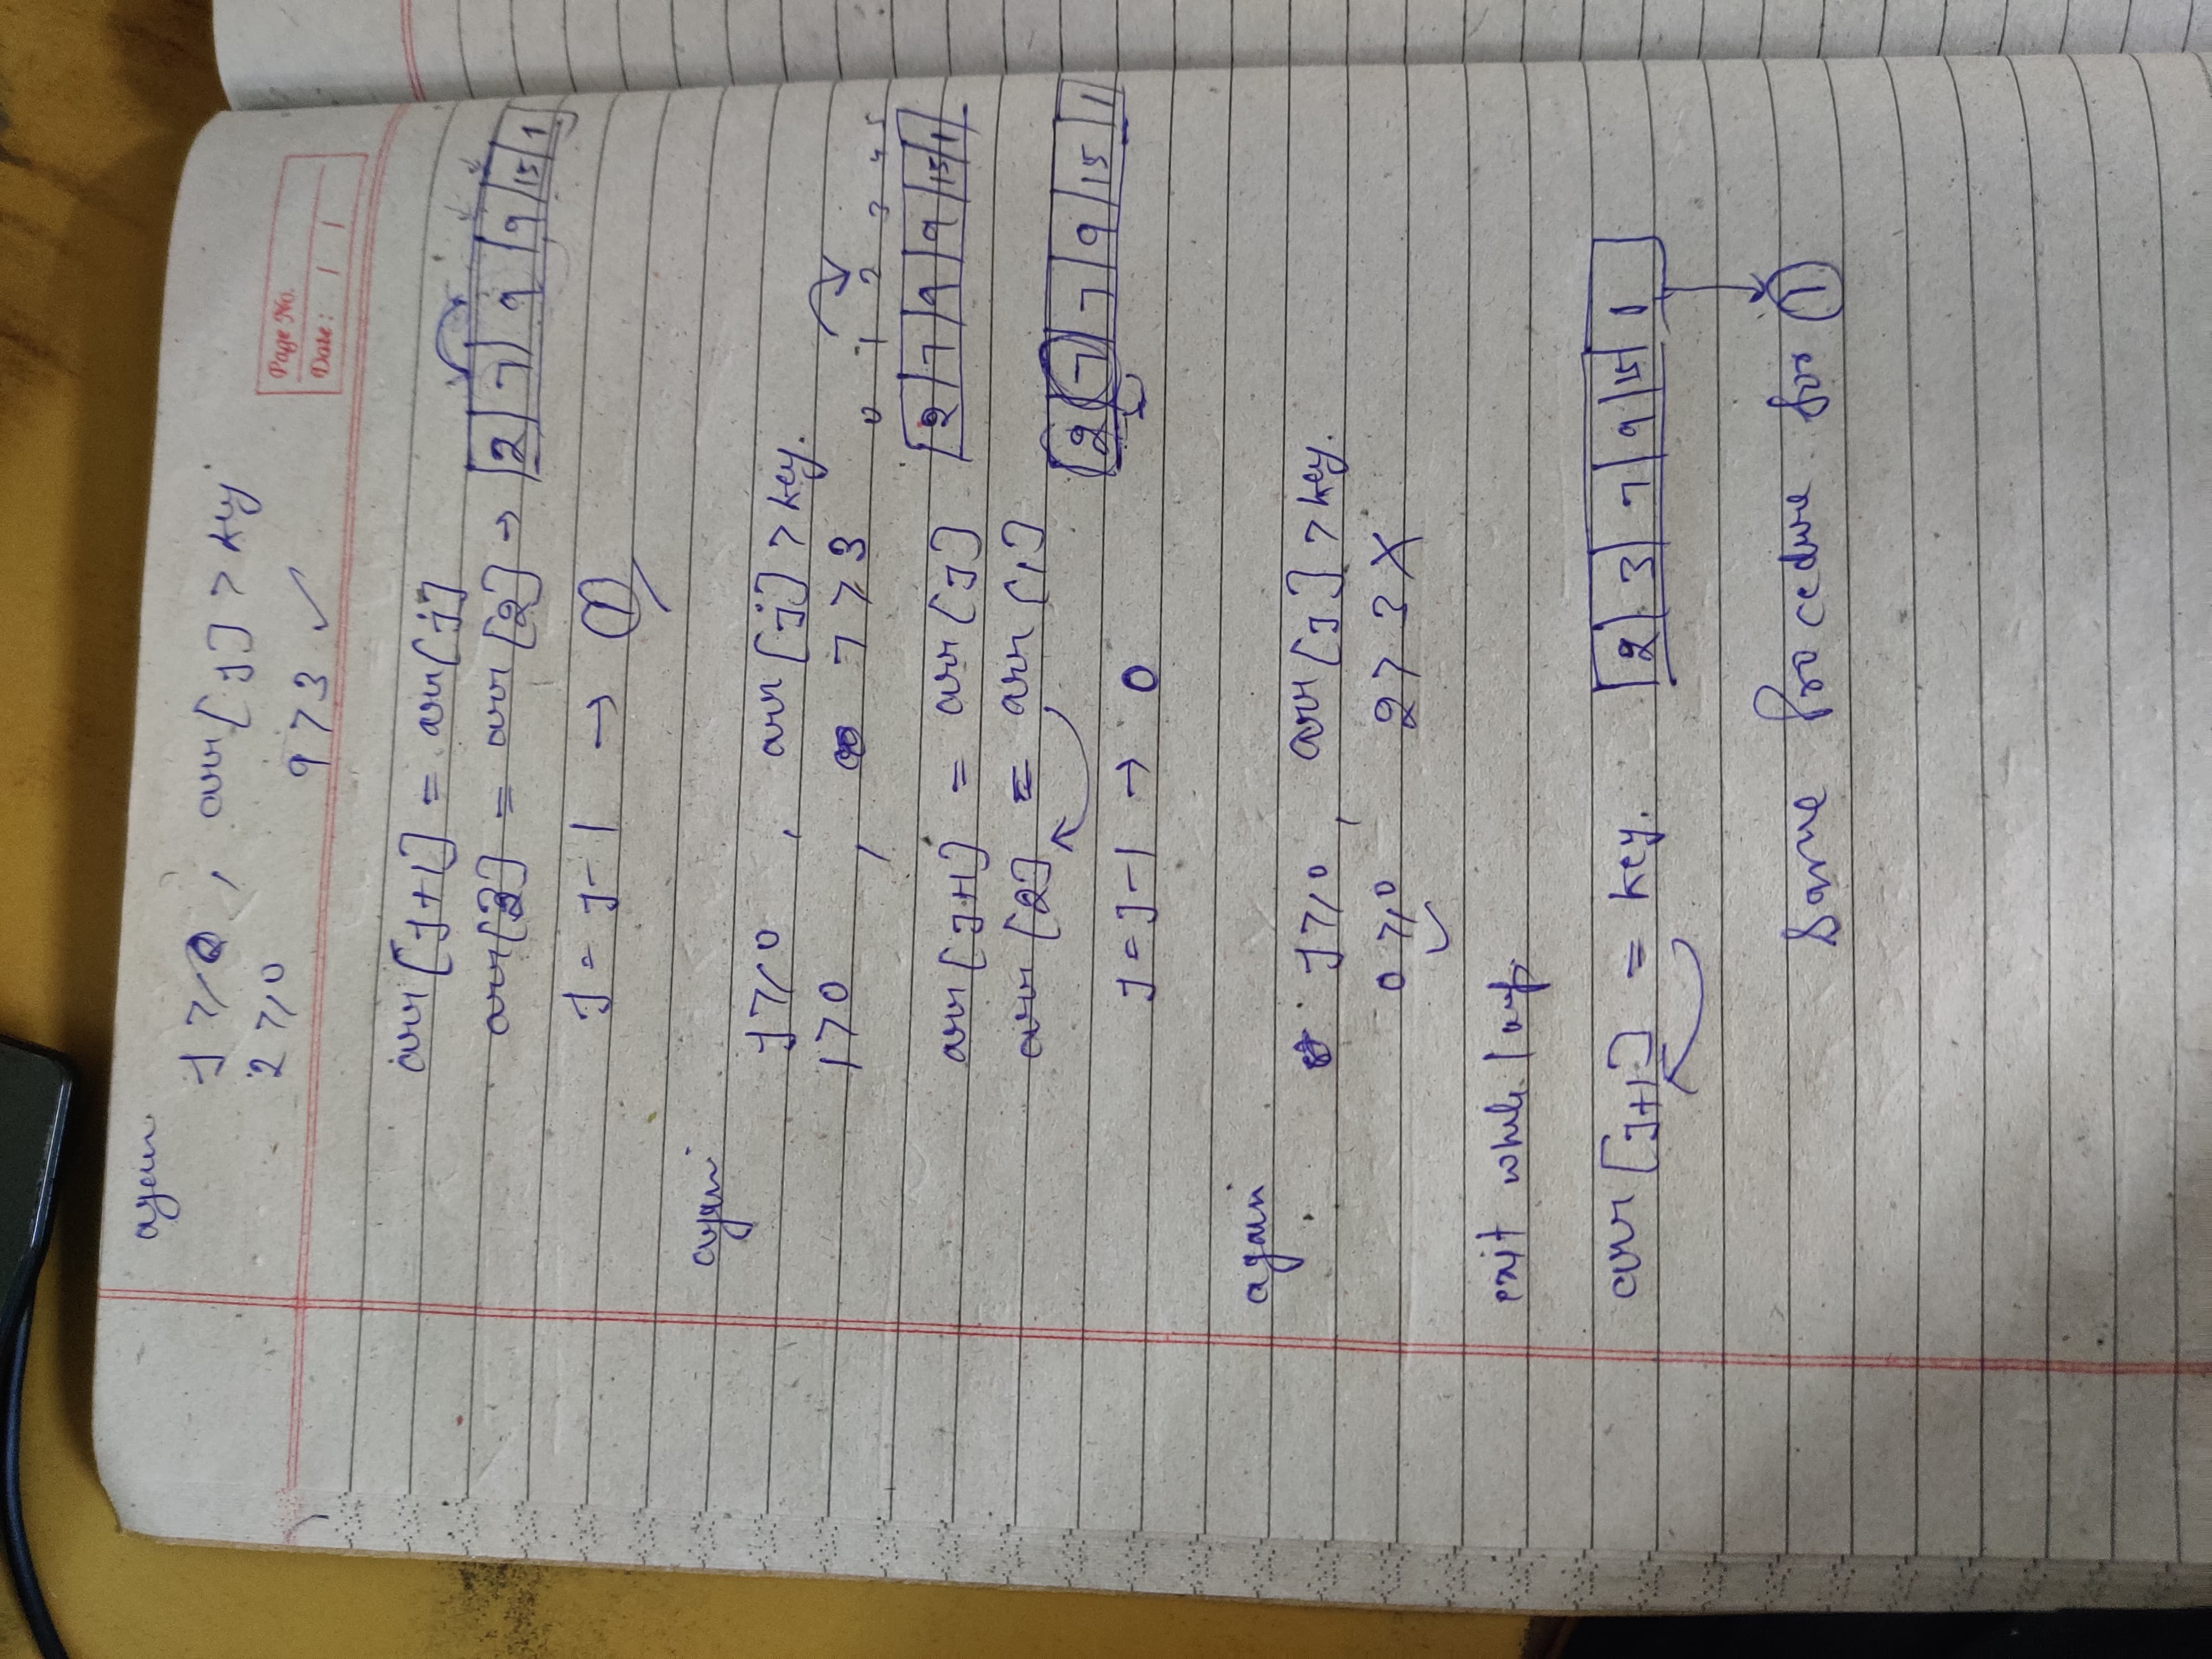 Page No.
Date: / /
again
j ≥ 0 , arr[j] > key
2 ≥ 0 9 > 3 ✓
arr[j+1] = arr[j]
arr[3] = arr[2] → 2 | 7 | 9 | 9 | 15 | 1
j = j-1 → 1
again
j ≥ 0 , arr[j] > key.
1 > 0 , 7 > 3
0 1 2 3 4 5
arr[j+1] = arr[j] 2 | 7 | 9 | 9 | 15 | 1
arr[2] = arr[1] 2 | 7 | 7 | 9 | 15 | 1
j = j-1 → 0
again
j ≥ 0 , arr[j] > key.
0 ≥ 0 ✓ 2 > 3 X
exit while loop
arr[j+1] = key. 2 | 3 | 7 | 9 | 15 | 1
Same procedure for 1